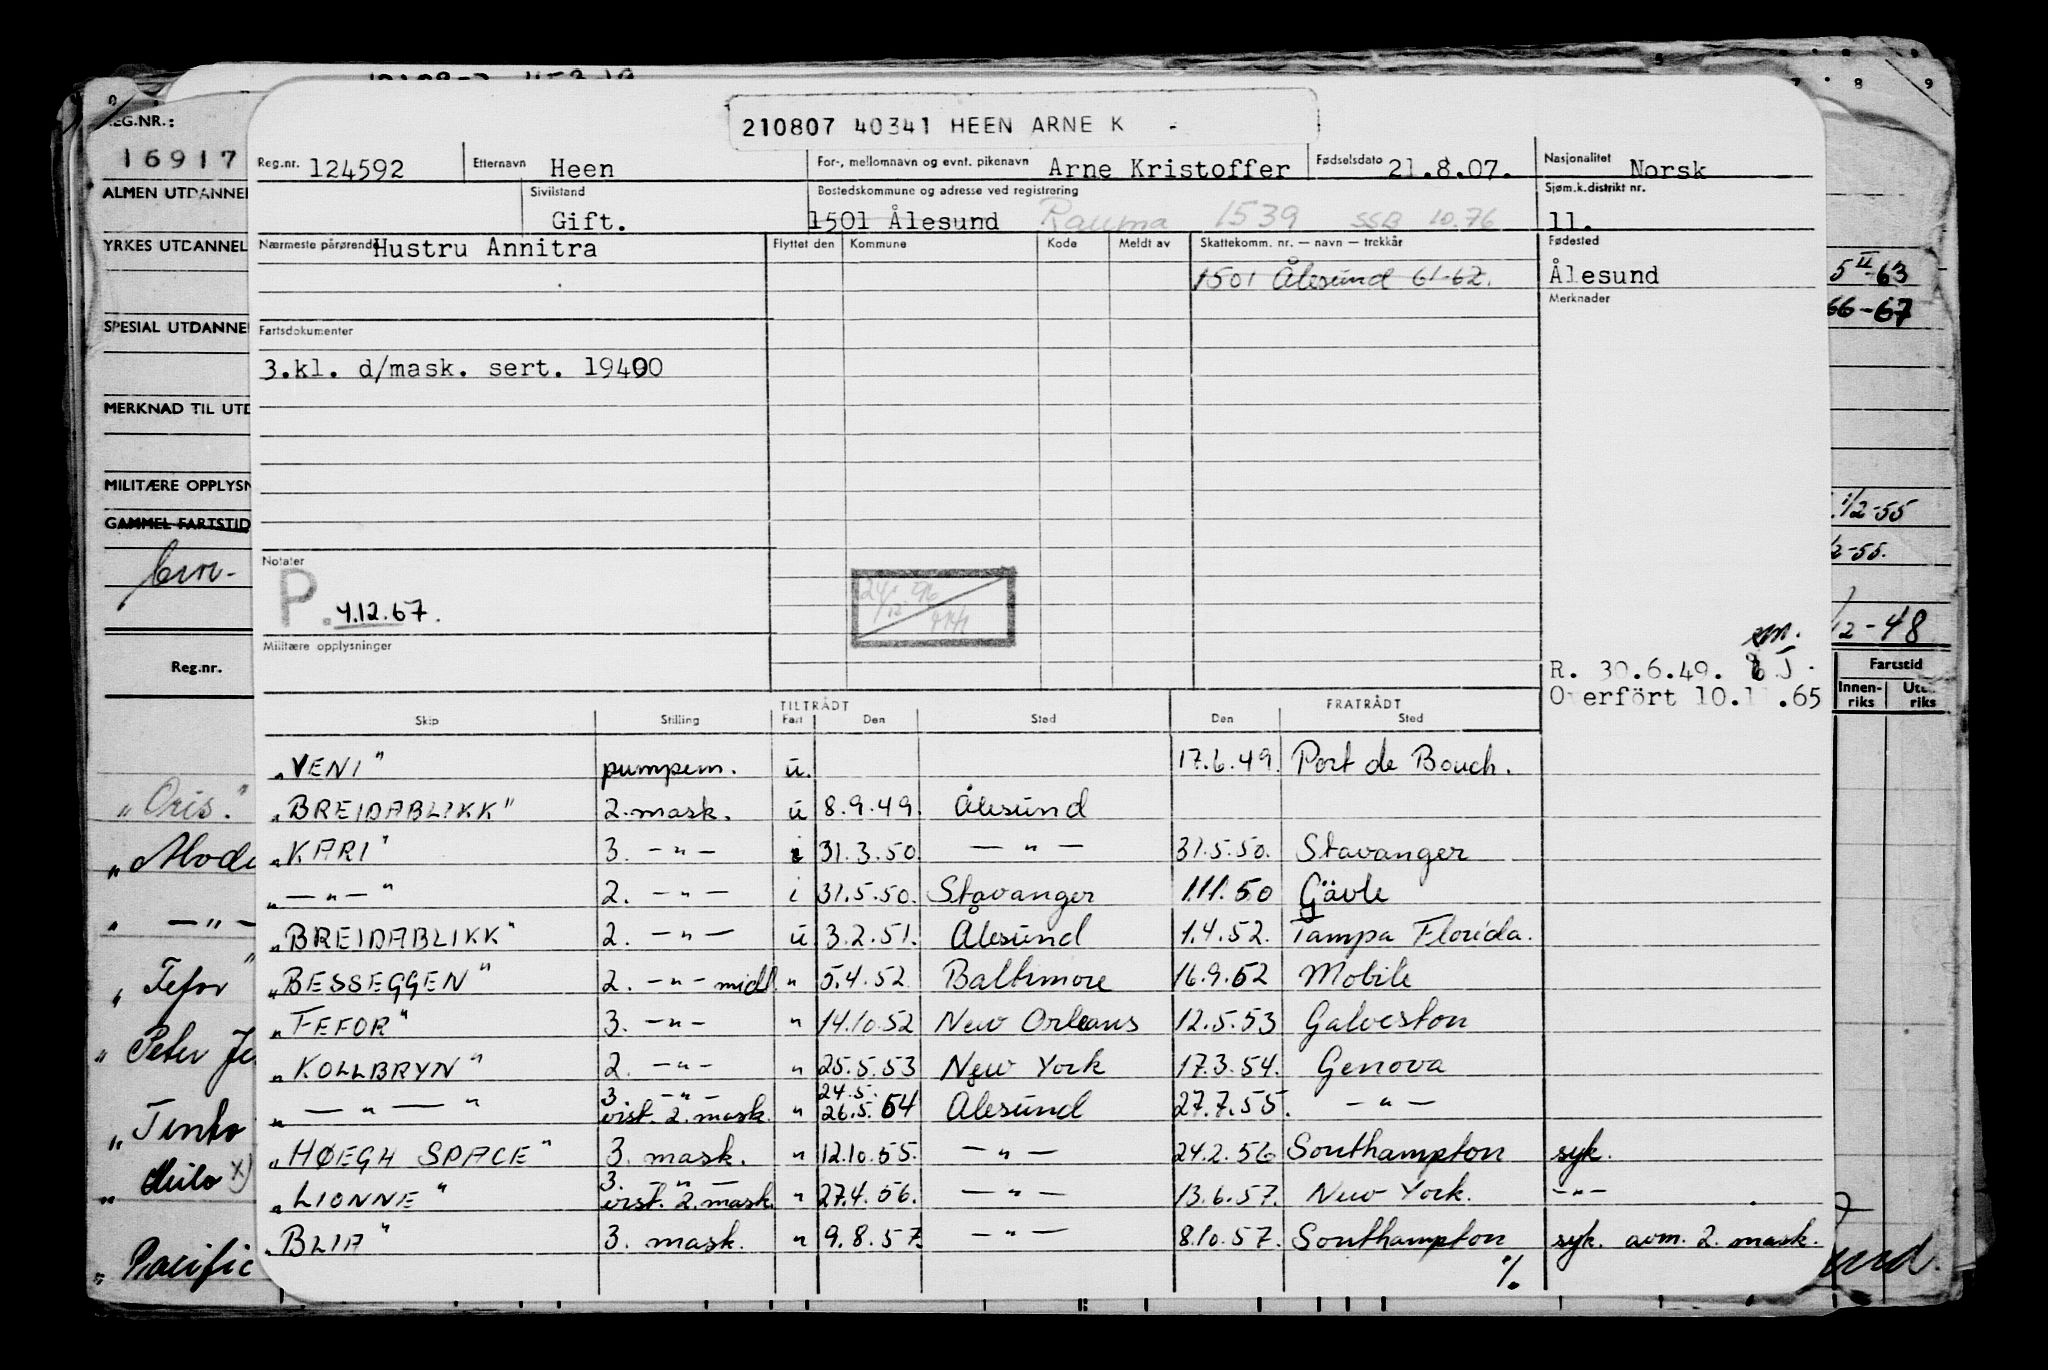 210807 40341 HEEN ARNE K -
Reg.nr. 124592 Etternavn Heen For-, mellomnavn og evnt. pikenavn Arne Kristoffer Fødselsdato 21.8.07. Nasjonalitet Norsk
Sivilstand Gift. Bostedskommune og adresse ved registrering 1501 Ålesund Rauma 1539 SSB 10.76 Sjøm.k.distrikt nr. 11.
Nærmeste pårørende Hustru Annitra Flyttet den Kommune Kode Meldt av Skattekomm. nr. — navn — trekkår Fødested
1501 Ålesund 61-62. Ålesund
Merknader
Fartsdokumenter
3.kl. d/mask. sert. 19400
Notater
P. 4.12.67.
Militære opplysninger
R. 30.6.49.
Overfört 10.11.65
Skip Stilling TILTRÅDT Fart Den Sted FRATRÅDT Den Sted
„VENI" pumpem. u. 17.6.49. Port de Bouch.
„BREIDABLIKK" 2. mask. u 8.9.49. Ålesund
„KARI" 3. —"— i 31.3.50. —"— 31.5.50. Stavanger
„—"—" 2. —"— i 31.5.50. Stavanger 1.11.50 Gävle
„BREIDABLIKK" 2. —"— u 3.2.51. Ålesund 1.4.52. Tampa Florida.
„BESSEGGEN" 2. —"— midl. " 5.4.52. Baltimore 16.9.52 Mobile
„FEFOR" 3. —"— " 14.10.52 New Orleans 12.5.53 Galveston
„KOLLBRYN" 2. —"— " 25.5.53 New York 17.3.54. Genova
3. —"— 24.5.
„—"—" vist. 2. mask. " 26.5.54 Ålesund 27.7.55. —"—
„HØEGH SPACE" 3. mask. " 12.10.55. —"— 24.2.56 Southampton syk.
3. —"—
„LIONNE" vist. 2. mask. " 27.4.56. —"— 13.6.57. New York. —"—
„BLIA" 3. mask. " 9.8.57. —"— 8.10.57. Southampton syk. avm. 2. mask.
%
REG.NR.:
16917
ALMEN UTDANNEL
YRKES UTDANNEL
SPESIAL UTDANNEL
MERKNAD TIL UTD
MILITÆRE OPPLYSN
GAMMEL FARTSTID
Reg.nr.
„Oris."
„—"—
„Fefor"
„Peter Je
„Tento
„Pacific
7 8 9
5 II-63
66-67
1/2-55
/2-55.
1/2-48
Fartstid
Innen-riks Uten-riks
und.